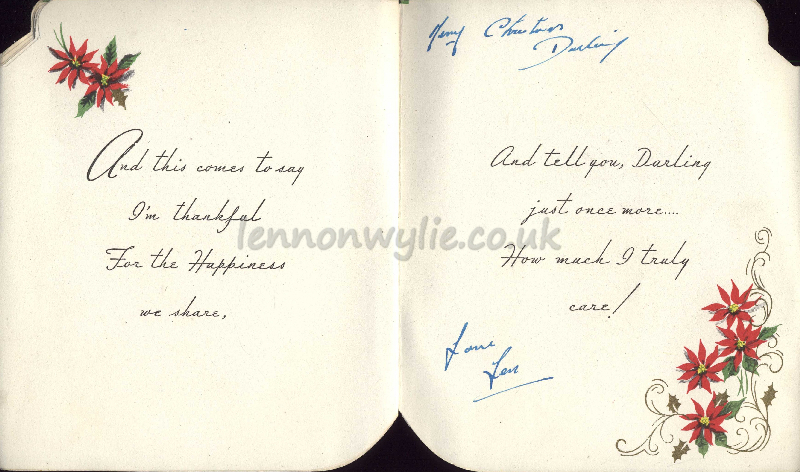 And this comes to say
I'm thankful
For the Happiness
we share,
Merry Christmas
Darling
And tell you, Darling
just once more....
How much I truly
care!
Love
Len
lennonwylie.co.uk